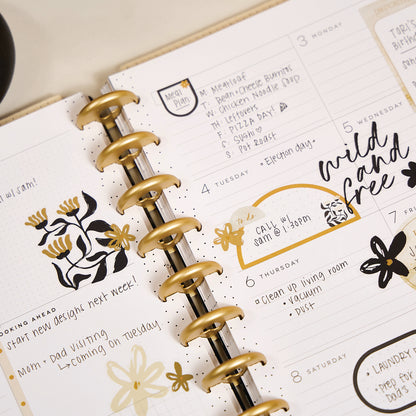 w/ sam!
OOKING AHEAD
start new designs next week!
Mom + Dad visiting
↳ coming on Tuesday
Meal Plan
M. Meatloaf
T. Bean + Cheese Burritos
W. Chicken Noodle Soup
TH. Leftovers
F. PIZZA DAY!
S. Sushi ♡
S. Pot Roast
3 MONDAY
4 TUESDAY
• Election day •
to do
CALL w/
sam @ 1:30pm
5 WEDNESDAY
wild
and
free
6 THURSDAY
• Clean up living room
• Vacuum
• Dust
7
8 SATURDAY
LAUNDRY DAY
• Prep for
Tori's
Birthd